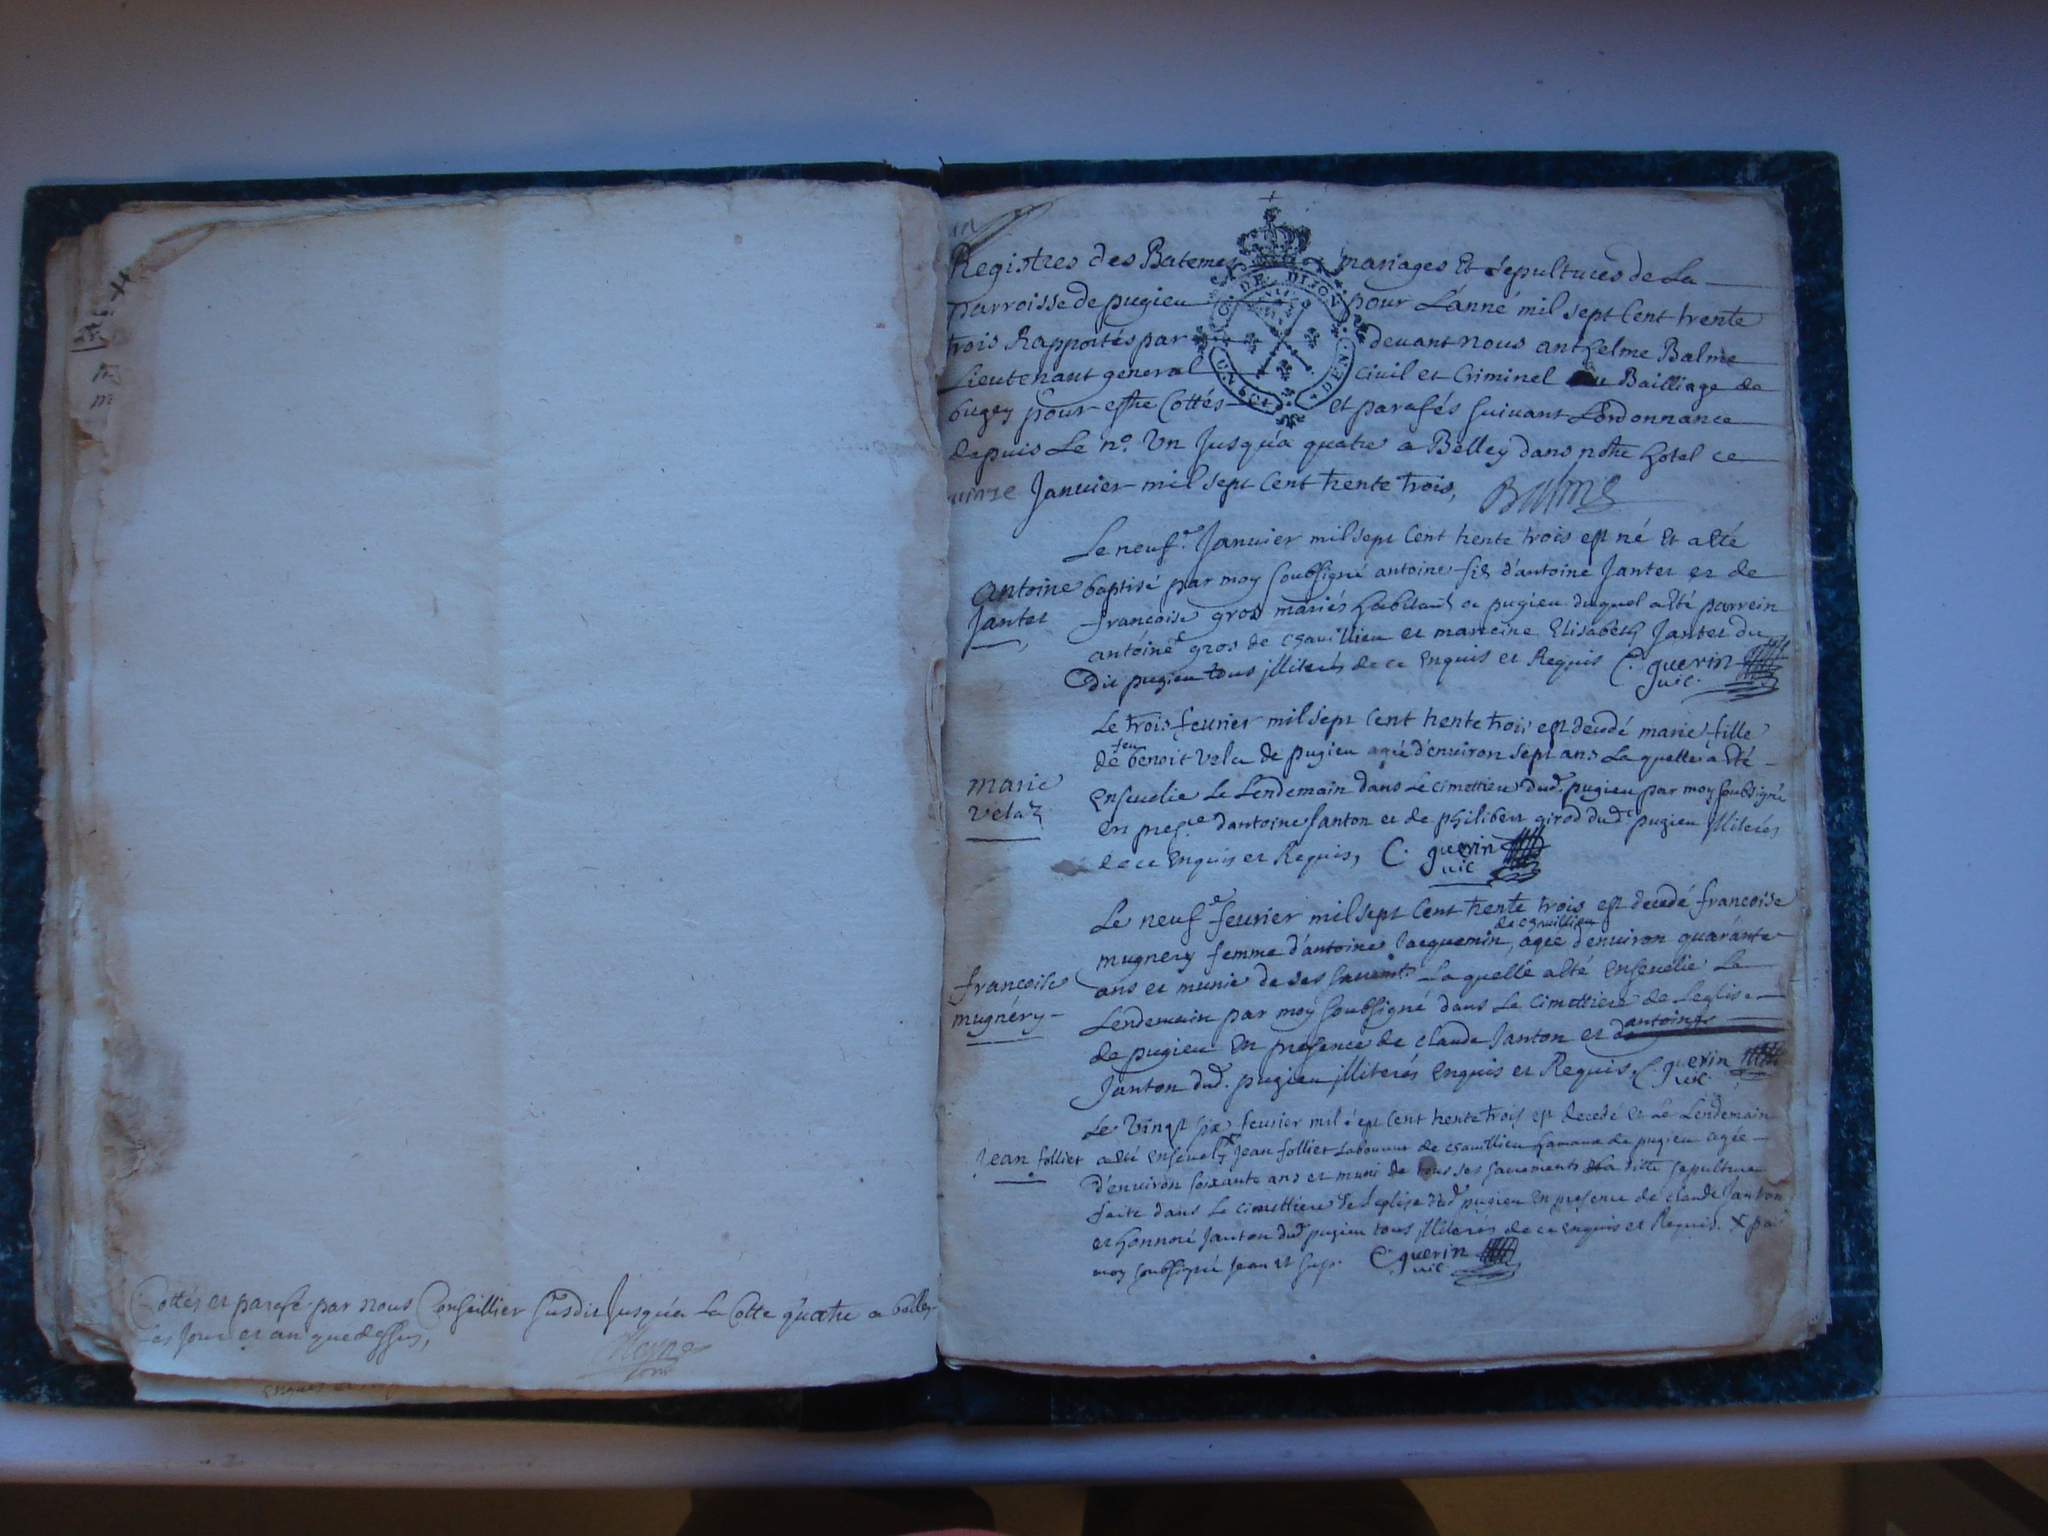 Cottés et parafé par nous Conseillier susdit Jusqu'a La Cotte quatre a belley
Les Jour et an que dessus,
Registres des Batemes mariages Et sepultures de La
parroisse de pugieu pour L'anné mil sept Cent trente
trois Rapportés par devant nous anthelme Balme
Lieutenant general civil et Criminel au Bailliage de
bugey pour estre Cottés et parafés suivant L'ordonnance
depuis Le n.o Un Jusqu'a quatre a Belley dans notre hotel ce
Janvier mil sept Cent trente trois, Balme
DE DIJON
Le neuf.e Janvier mil sept Cent trente trois est né Et a Eté
antoine
Jantet
baptisé par moy soubsigné antoine fils d'antoine Jantet et de
francoise gros mariés habitants de pugieu duquel a Eté parrein
antoine gros de chavillieu et marreine Elisabeth Jantet du
Dit pugieu tous illiterés de ce Enquis et Requis C. guerin
vic.
Le trois fevrier mil sept Cent trente trois est decedé marie fille
de feu benoit vela de pugieu agée d'environ sept ans La quelle a Eté
marie
vela
Ensevelie Le Lendemain dans Le cimettiere dud. pugieu par moy soubsigné
En pres.ce d'antoine Janton et de philibert girod dud. pugieu illiterés
de ce Enquis et Requis, C. guerin
vic
Le neuf.e fevrier mil sept Cent trente trois est decedé francoise
mugnery femme d'antoine Jacquemin de chavillieu, agée d'environ quarante
francoise
mugnéry
ans et munie de ses sacremts La quelle a Eté Ensevelie Le
Lendemain par moy soubsigné dans Le cimettiere de L'eglise
de pugieu En presence de claude Janton et d'antoine
Janton dud. pugieu illiterés Enquis et Requis C. guerin
vic.
Le Vingt six fevrier mil sept Cent trente trois est decedé et Le Lendemain
Jean folliet
a Eté Ensevely Jean folliet Laboureur de chavillieu hameau de pugieu agée
d'environ soixante ans et muni de tous ses sacrements La ditte sepulture
faite dans Le cimettiere de L'eglise dud pugieu En presence de claude Janton
et honnoré Janton dud pugieu tous illiterés de ce Enquis et Requis. X par
moy soubsigné C. guerin
vic.